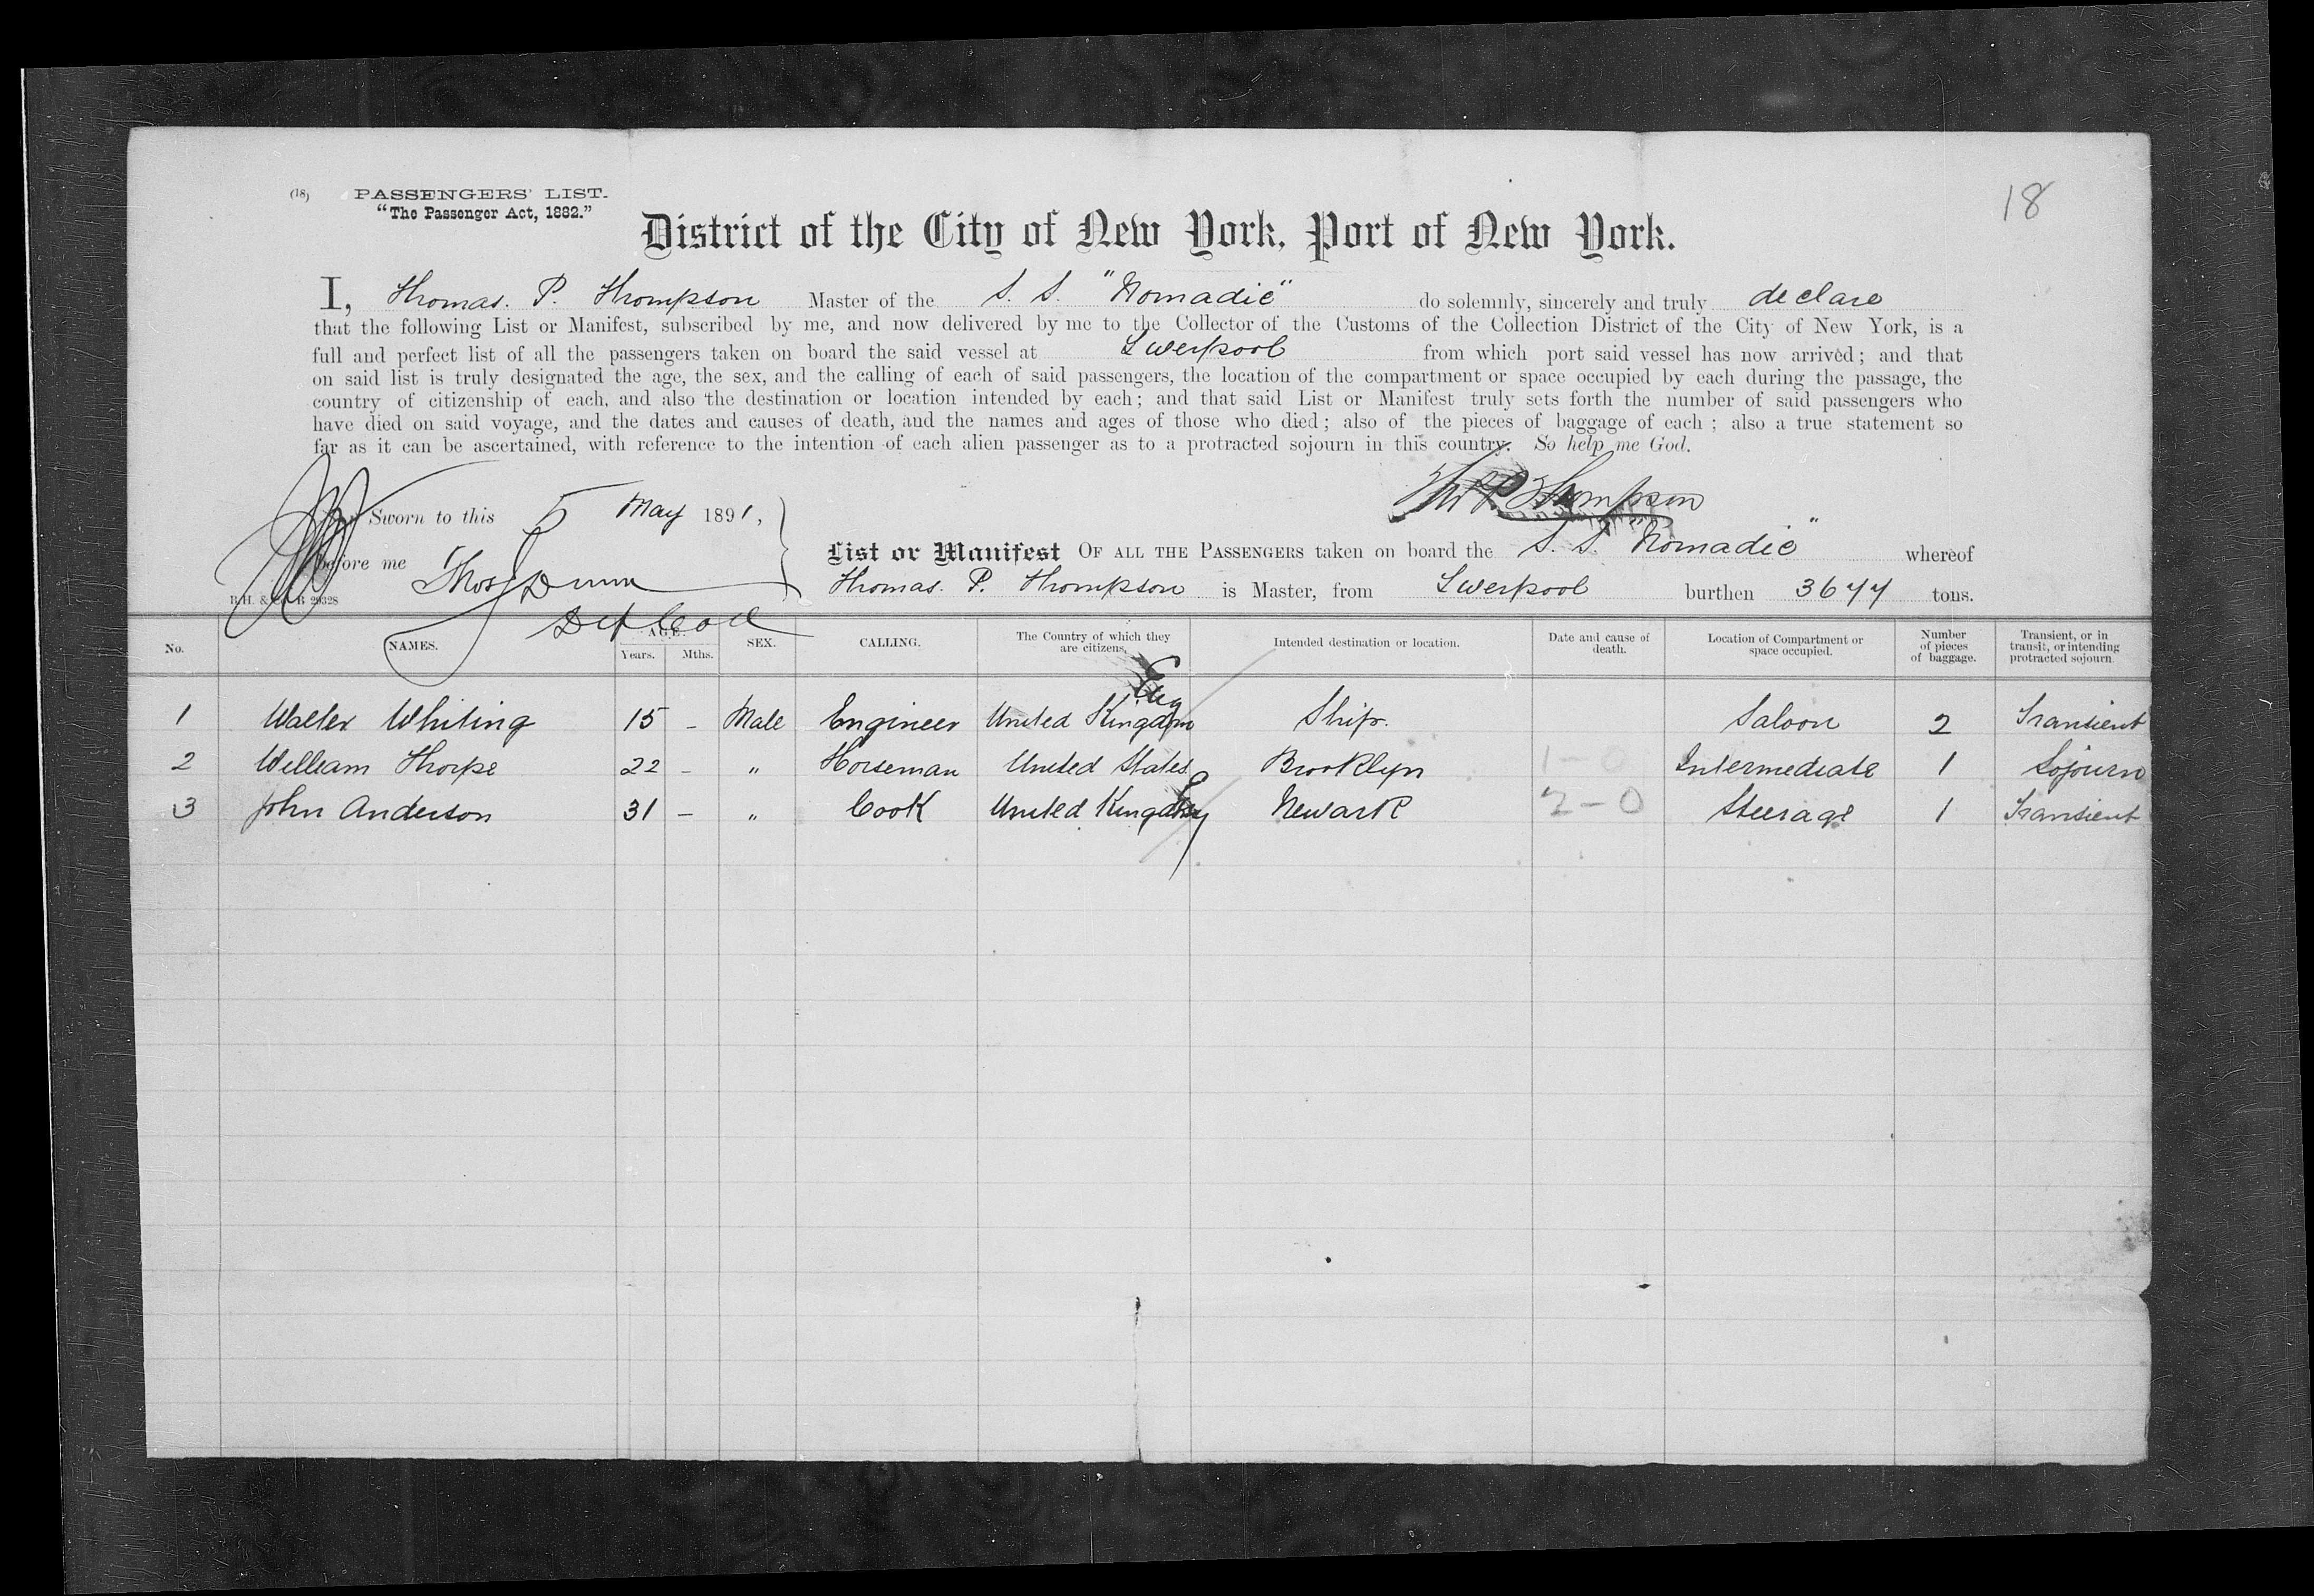 (18) PASSENGERS' LIST.
"The Passenger Act, 1882."
18
District of the City of New York, Port of New York.
I, Thomas. P. Thompson Master of the S. S. "Nomadic" do solemnly, sincerely and truly declare
that the following List or Manifest, subscribed by me, and now delivered by me to the Collector of the Customs of the Collection District of the City of New York, is a
full and perfect list of all the passengers taken on board the said vessel at Liverpool from which port said vessel has now arrived; and that
on said list is truly designated the age, the sex, and the calling of each of said passengers, the location of the compartment or space occupied by each during the passage, the
country of citizenship of each, and also the destination or location intended by each; and that said List or Manifest truly sets forth the number of said passengers who
have died on said voyage, and the dates and causes of death, and the names and ages of those who died; also of the pieces of baggage of each; also a true statement so
far as it can be ascertained, with reference to the intention of each alien passenger as to a protracted sojourn in this country. So help me God.
Thos P Thompson
Sworn to this 5 May 1891,
before me Thos Dunn
Dep Coll
List or Manifest OF ALL THE PASSENGERS taken on board the S. S. "Nomadic" whereof
Thomas. P. Thompson is Master, from Liverpool burthen 3677 tons.
No. NAMES. AGE. Years. Mths. SEX. CALLING. The Country of which they are citizens. Intended destination or location. Date and cause of death. Location of Compartment or space occupied. Number of pieces of baggage. Transient, or in transit, or intending protracted sojourn.
Eng
1 Walter Whiting 15 - Male Engineer United Kingdom Ship. Saloon 2 Transient
2 William Thorpe 22 - " Horseman United States Brooklyn 1-0 Intermediate 1 Sojourn
3 John Anderson 31 - " Cook United Kingdom Newark 2-0 Steerage 1 Transient